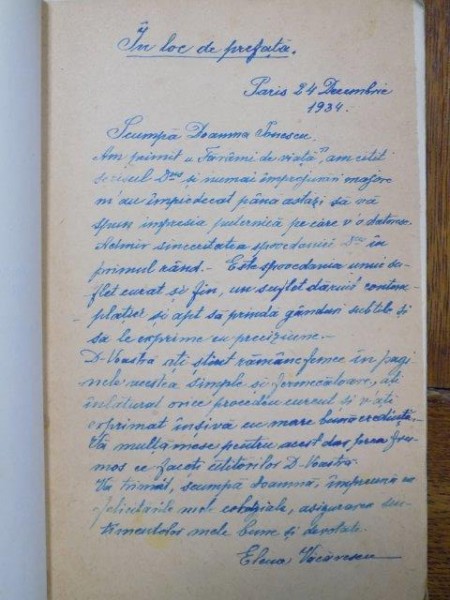 În loc de prefață.
Paris 24 Decembrie
1934.
Scumpă Doamna Ionescu.
Am primit „Farâmi de viață” am citit
scrisul Dvs și numai împrejurări majore
m'au împiedecat până astazi să vă
spun impresia puternică pe care v'o datoresc
Admir sinceritatea spovedaniei Dv. în
primul rând. - Este spovedania unui su-
flet curat și fin, un suflet dăruit contem-
plației și apt să prindă gânduri subtile și
sa le exprime cu preciziune.-
D-Voastră ați știut rămâne femee în pagi-
nele acestea simple si fermecătoare, ați
înlăturat orice procedeu curent și v'ați
exprimat însivă cu mare bună credință.-
Vă mulțumesc pentru acest dar prea fru-
mos ce faceți cititorilor D-Voastră
Vă trimit, scumpă doamnă, împreună cu
felicitările mele colegiale, asigurarea sen-
timentelor mele bune și devotate.
Elena Văcărescu